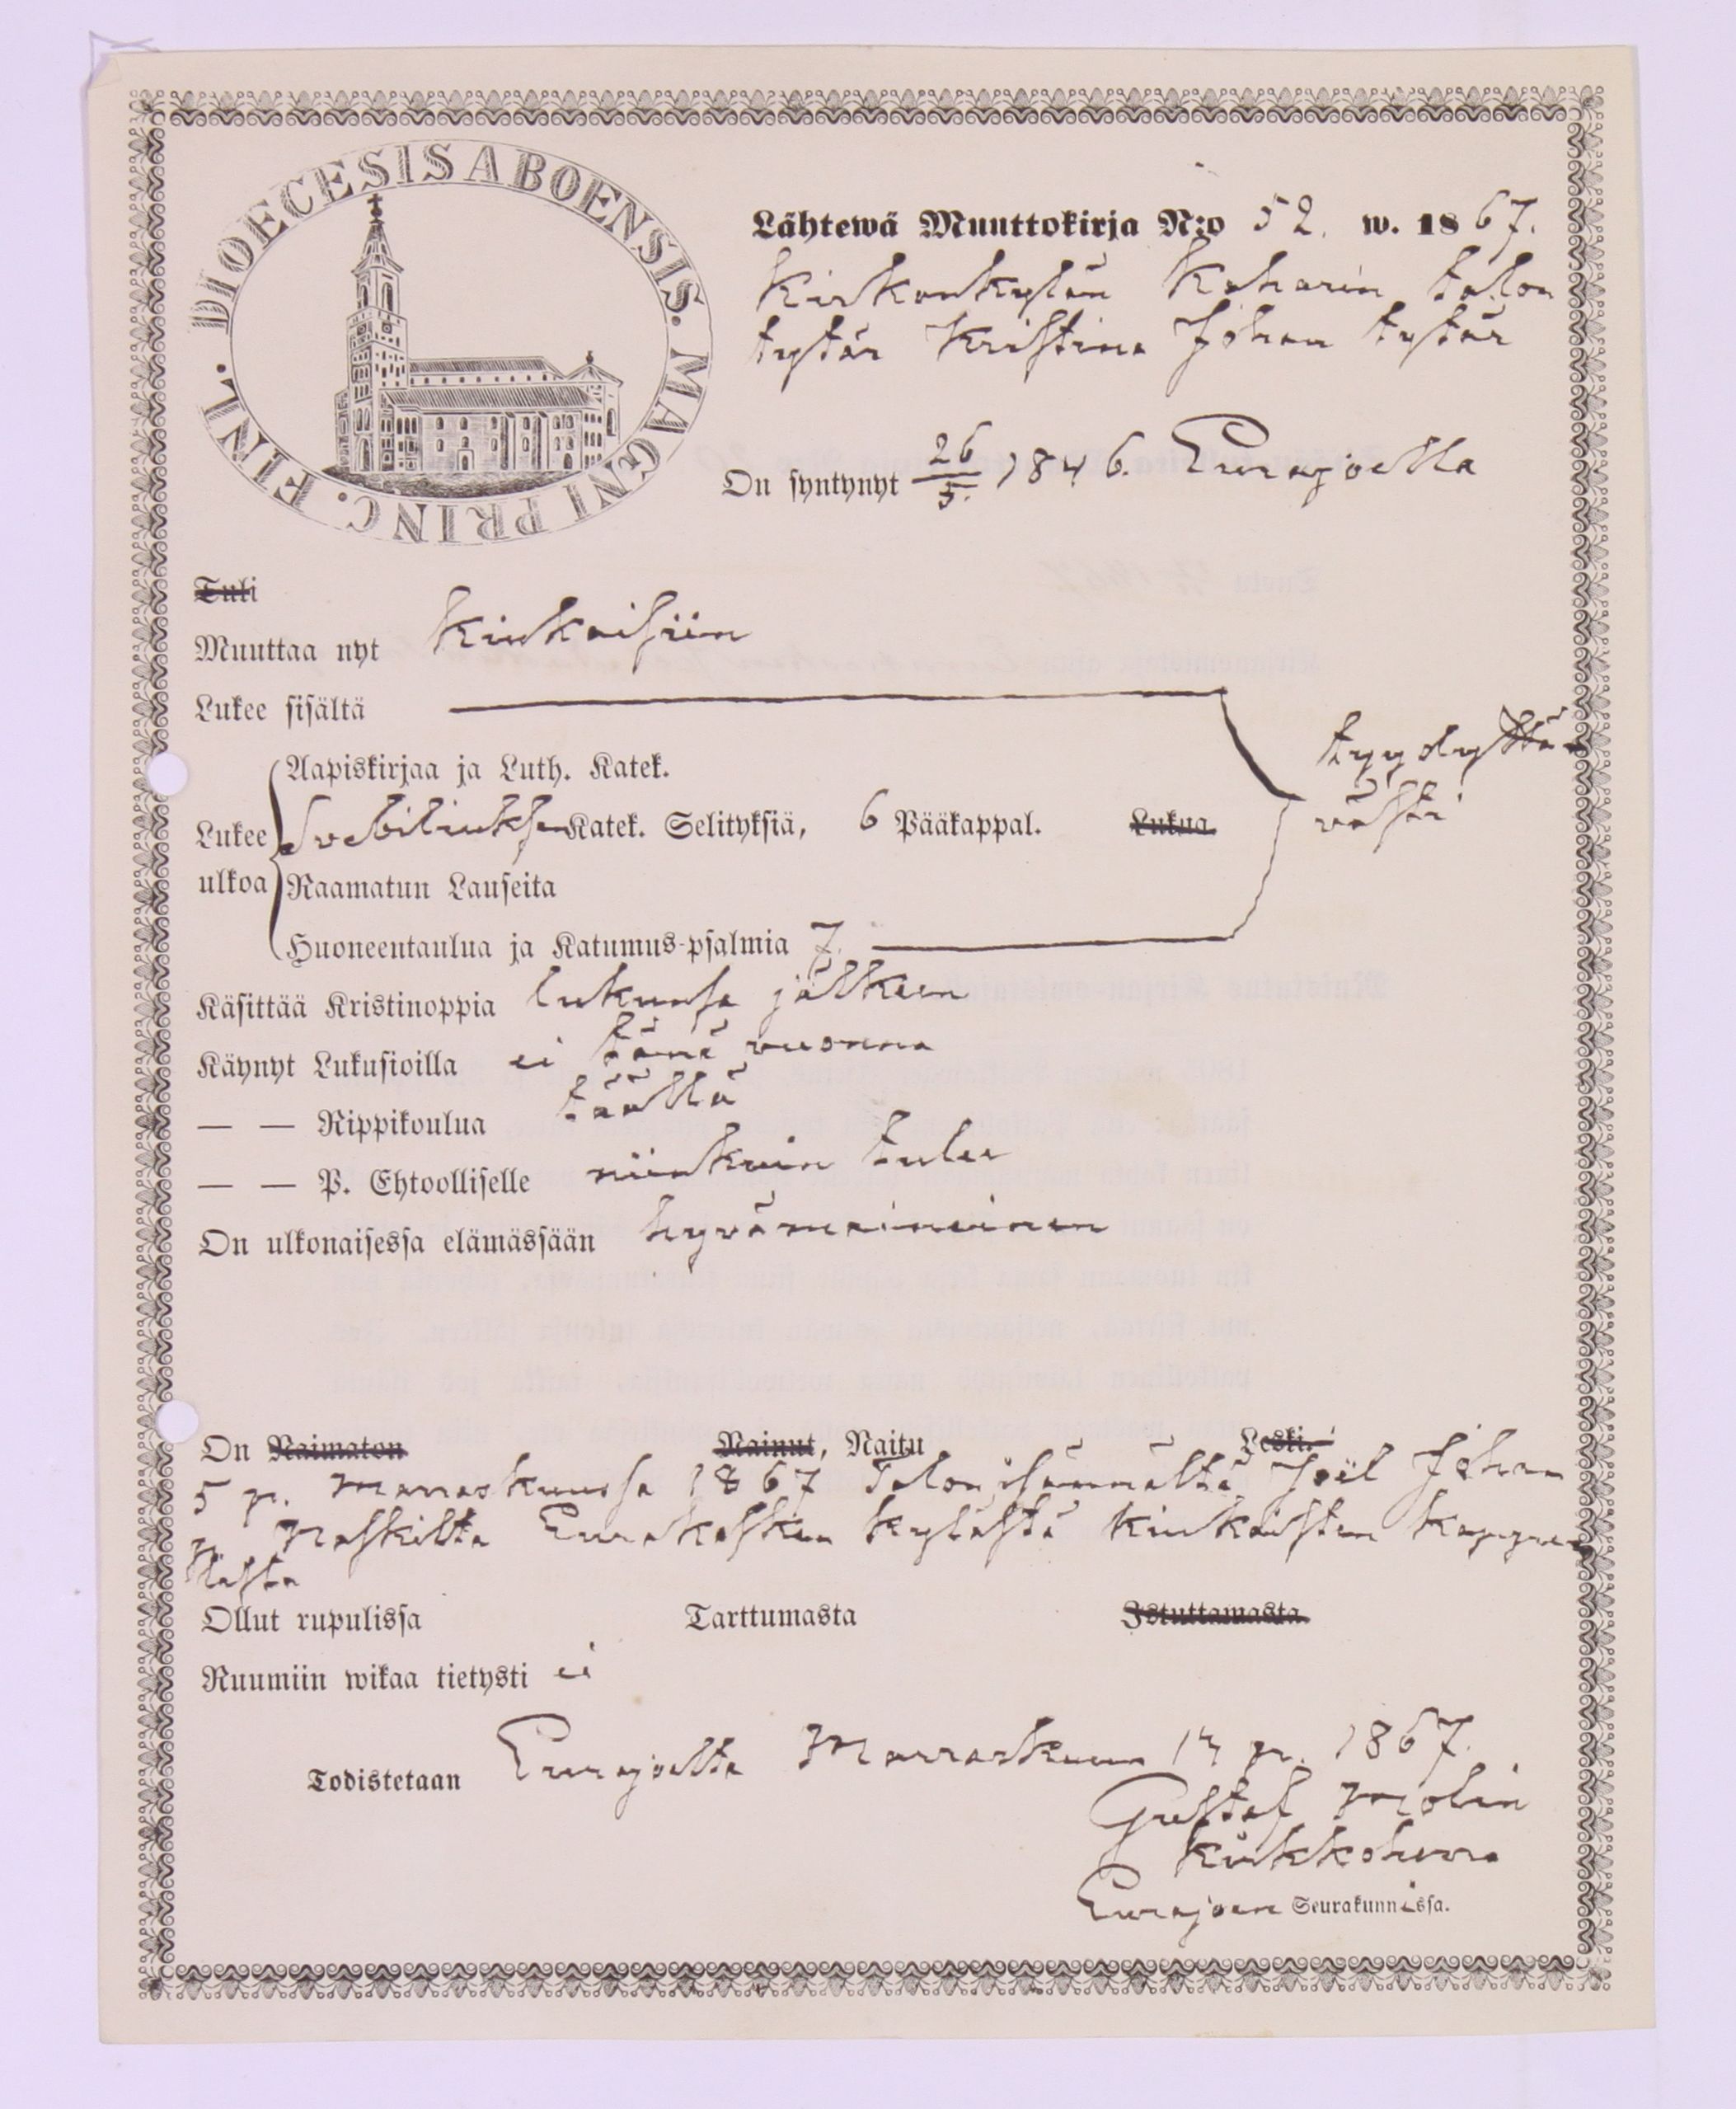 DIOECESIS ABOENSIS. MAGNI PRINC. FINL.
Lähtewä Muuttokirja N:o 52. w. 1867.
Kirkonkylän Koharin talon
tytär Kristina Johan tytär
On syntynyt 26/5. 1846. Eurajoella
Tuli
Muuttaa nyt Kiukaisiin
Lukee sisältä
tyydyttä-
västi
Lukee ulkoa
Aapiskirjaa ja Luth. Katek.
Svebiliuksen Katek. Selityksiä, 6 Pääkappal. Lukua.
Raamatun Lauseita
Huoneentaulua ja Katumus-psalmia 7.
Käsittää Kristinoppia lukunsa jälkeen
Käynyt Lukusioilla ei tänä vuonna
— — Rippikoulua täällä
— — P. Ehtoolliselle niinkuin tulee
On ulkonaisessa elämässään hyvämaineinen
On Naimaton Nainut, Naitu Leski
5 p. Marraskuussa 1867 Talon isännältä Joël Johan
p. Naskilta Eurakosken kylästä Kiukaisten kappe-
lista
Ollut rupulissa Tarttumasta Istuttamasta.
Ruumiin wikaa tietysti ei
Todistetaan Eurajoelta Marraskuun 17 p. 1867.
Gustaf Molin
Kirkkoherra
Eurajoen Seurakunnissa.